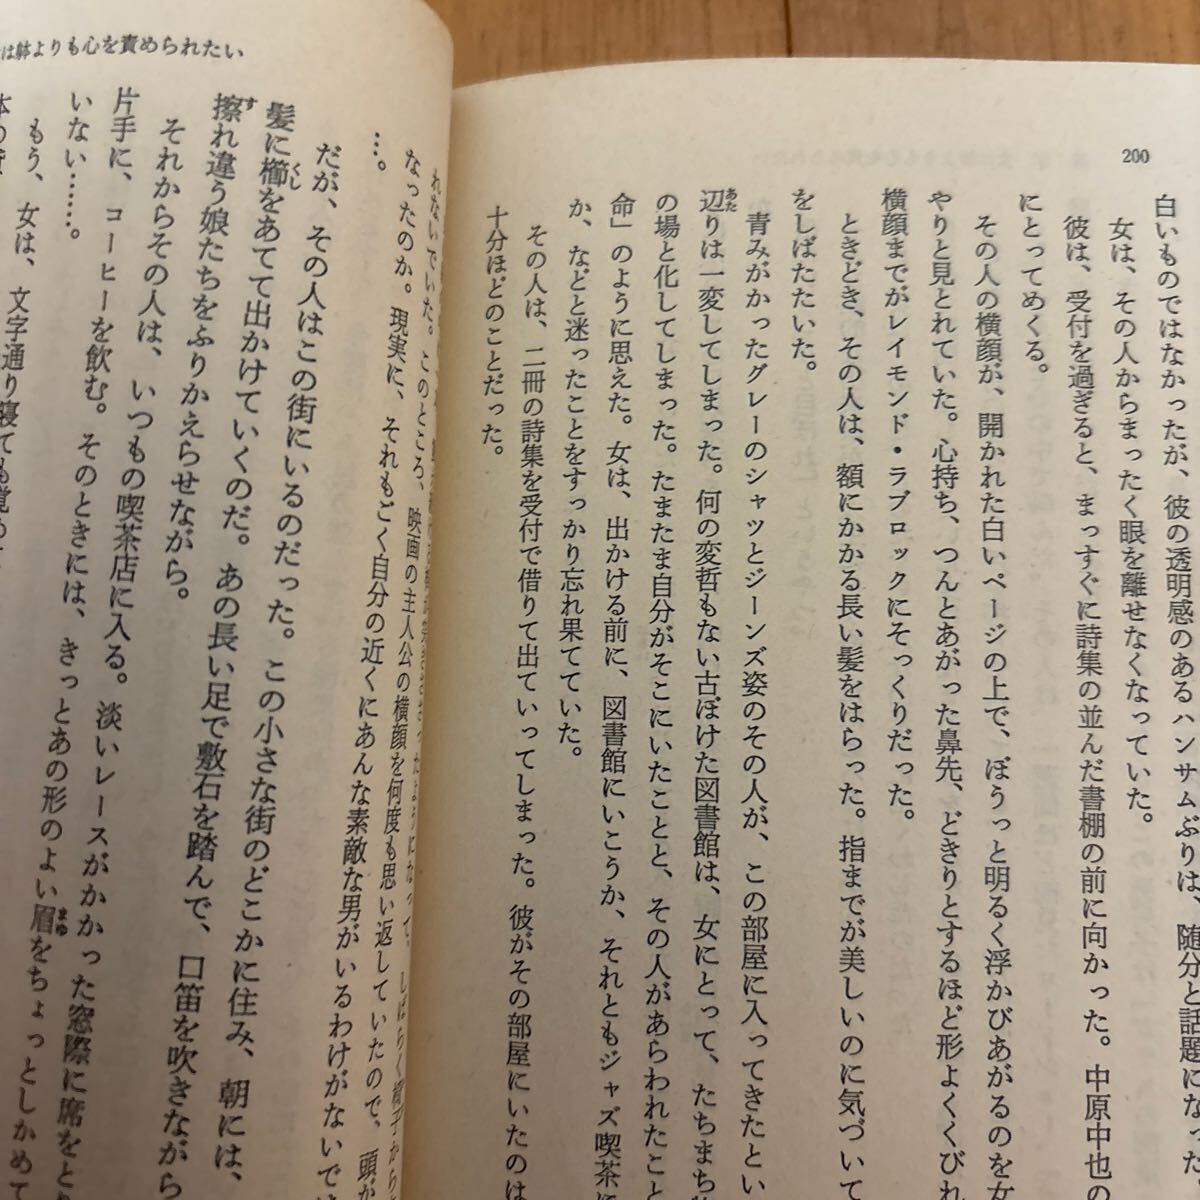 200
白いものではなかったが、彼の透明感のあるハンサムぶりは、随分と話題になった
女は、その人からまったく眼を離せなくなっていた。
彼は、受付を過ぎると、まっすぐに詩集の並んだ書棚の前に向かった。中原中也の
にとってめくる。
その人の横顔が、開かれた白いページの上で、ぼうっと明るく浮かびあがるのを女
やりと見とれていた。心持ち、つんとあがった鼻先、どきりとするほど形よくくびれ
横顔までがレイモンド・ラブロックにそっくりだった。
ときどき、その人は、額にかかる長い髪をはらった。指までが美しいのに気づいて
をしばたたいた。
青みがかったグレーのシャツとジーンズ姿のその人が、この部屋に入ってきたとい
辺りは一変してしまった。何の変哲もない古ぼけた図書館は、女にとって、たちまち
の場と化してしまった。たまたま自分がそこにいたことと、その人があらわれたこと
命」のように思えた。女は、出かける前に、図書館にいこうか、それともジャズ喫茶に
か、などと迷ったことをすっかり忘れ果てていた。
その人は、二冊の詩集を受付で借りて出ていってしまった。彼がその部屋にいたのは
十分ほどのことだった。
は躰よりも心を責められたい
しばらく椅子から
れないでいた。このところ、映画の主人公の横顔を何度も思い返していたので、頭が
なったのか。現実に、それもごく自分の近くにあんな素敵な男がいるわけがないで
…。
だが、その人はこの街にいるのだった。この小さな街のどこかに住み、朝には、
髪に櫛をあてて出かけていくのだ。あの長い足で敷石を踏んで、口笛を吹きながら
擦れ違う娘たちをふりかえらせながら。
それからその人は、いつもの喫茶店に入る。淡いレースがかかった窓際に席をと
片手に、コーヒーを飲む。そのときには、きっとあの形のよい眉をちょっとしかめて
いない……。
もう、女は、文字通り寝ても覚め